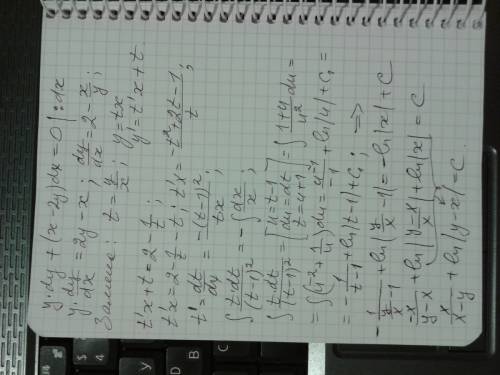 y·dy + (x-2y)dx = 0 | :dx
y·dy/dx = 2y - x; dy/dx = 2 - x/y;
Замена: t = y/x; y = tx
y' = t'x + t
t'x + t = 2 - 1/t;
t'x = 2 - 1/t - t; t'x = -t²+2t-1/t;
t' = dt/dx = -(t-1)²/tx;
∫ tdt/(t-1)² = -∫ dx/x;
∫ tdt/(t-1)² = [u=t-1 du=dt t=u+1] = ∫ 1+u/u² du =
= ∫(u⁻² + 1/u)du = u⁻¹/-1 + ln|u| + C₁ =
= -1/t-1 + ln|t-1| + C₁; ⟹
-1/(y/x -1) + ln|y/x -1| = -ln|x| + C
-x/y-x + ln|y-x/x| + ln|x| = C
x/x-y + ln|y-x| = C.